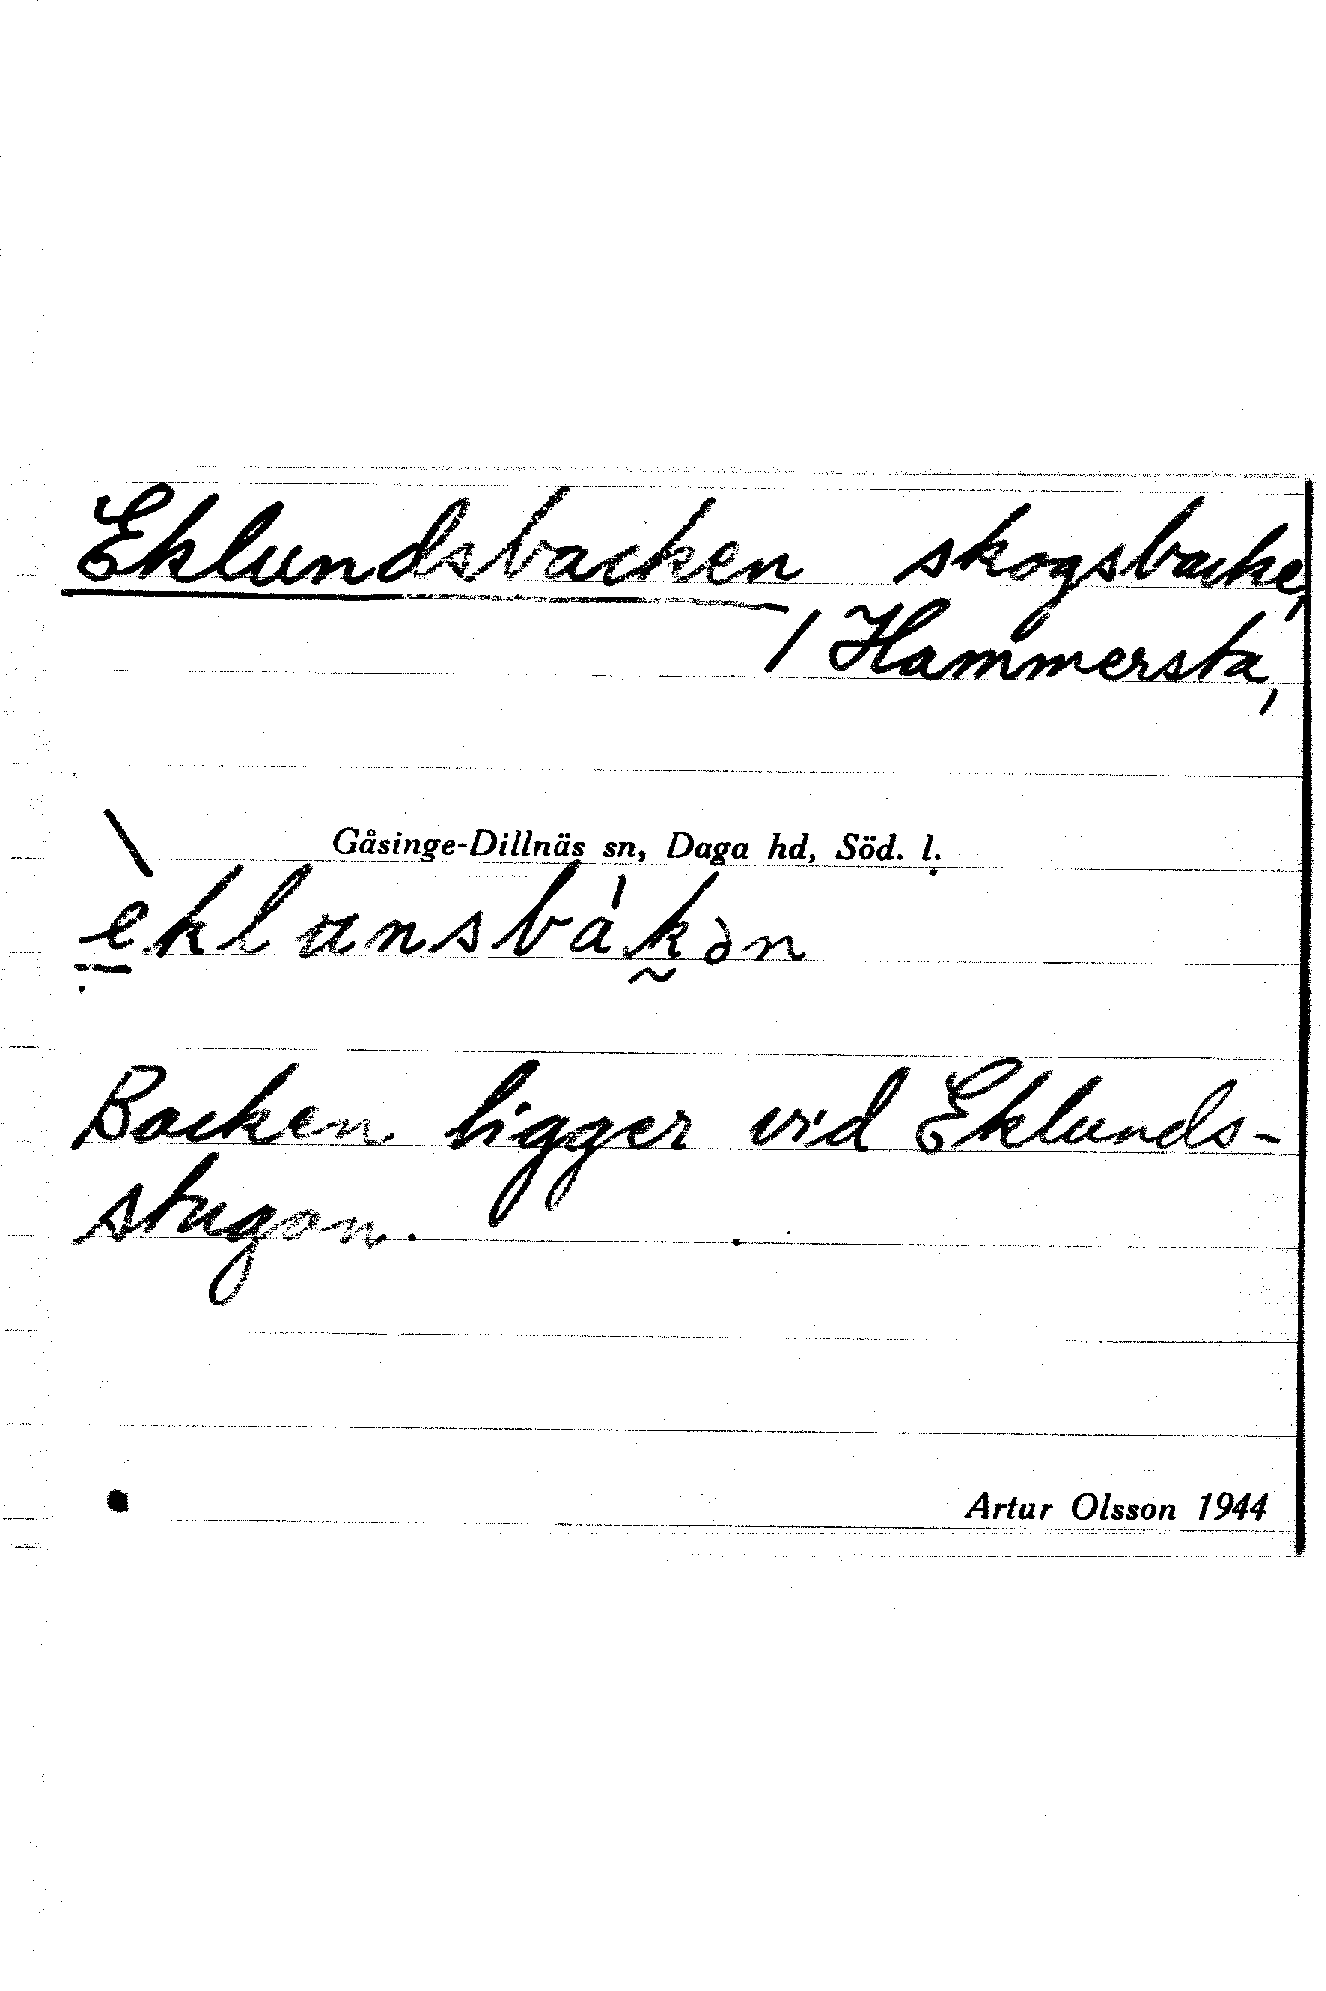 Eklundsbacken skogsbacke,
/ Hammersta,
Gåsinge-Dillnäs sn, Daga hd, Söd. l.
è̱klunsbák̰ən
Backen ligger vid Eklunds-
stugan.
Artur Olsson 1944